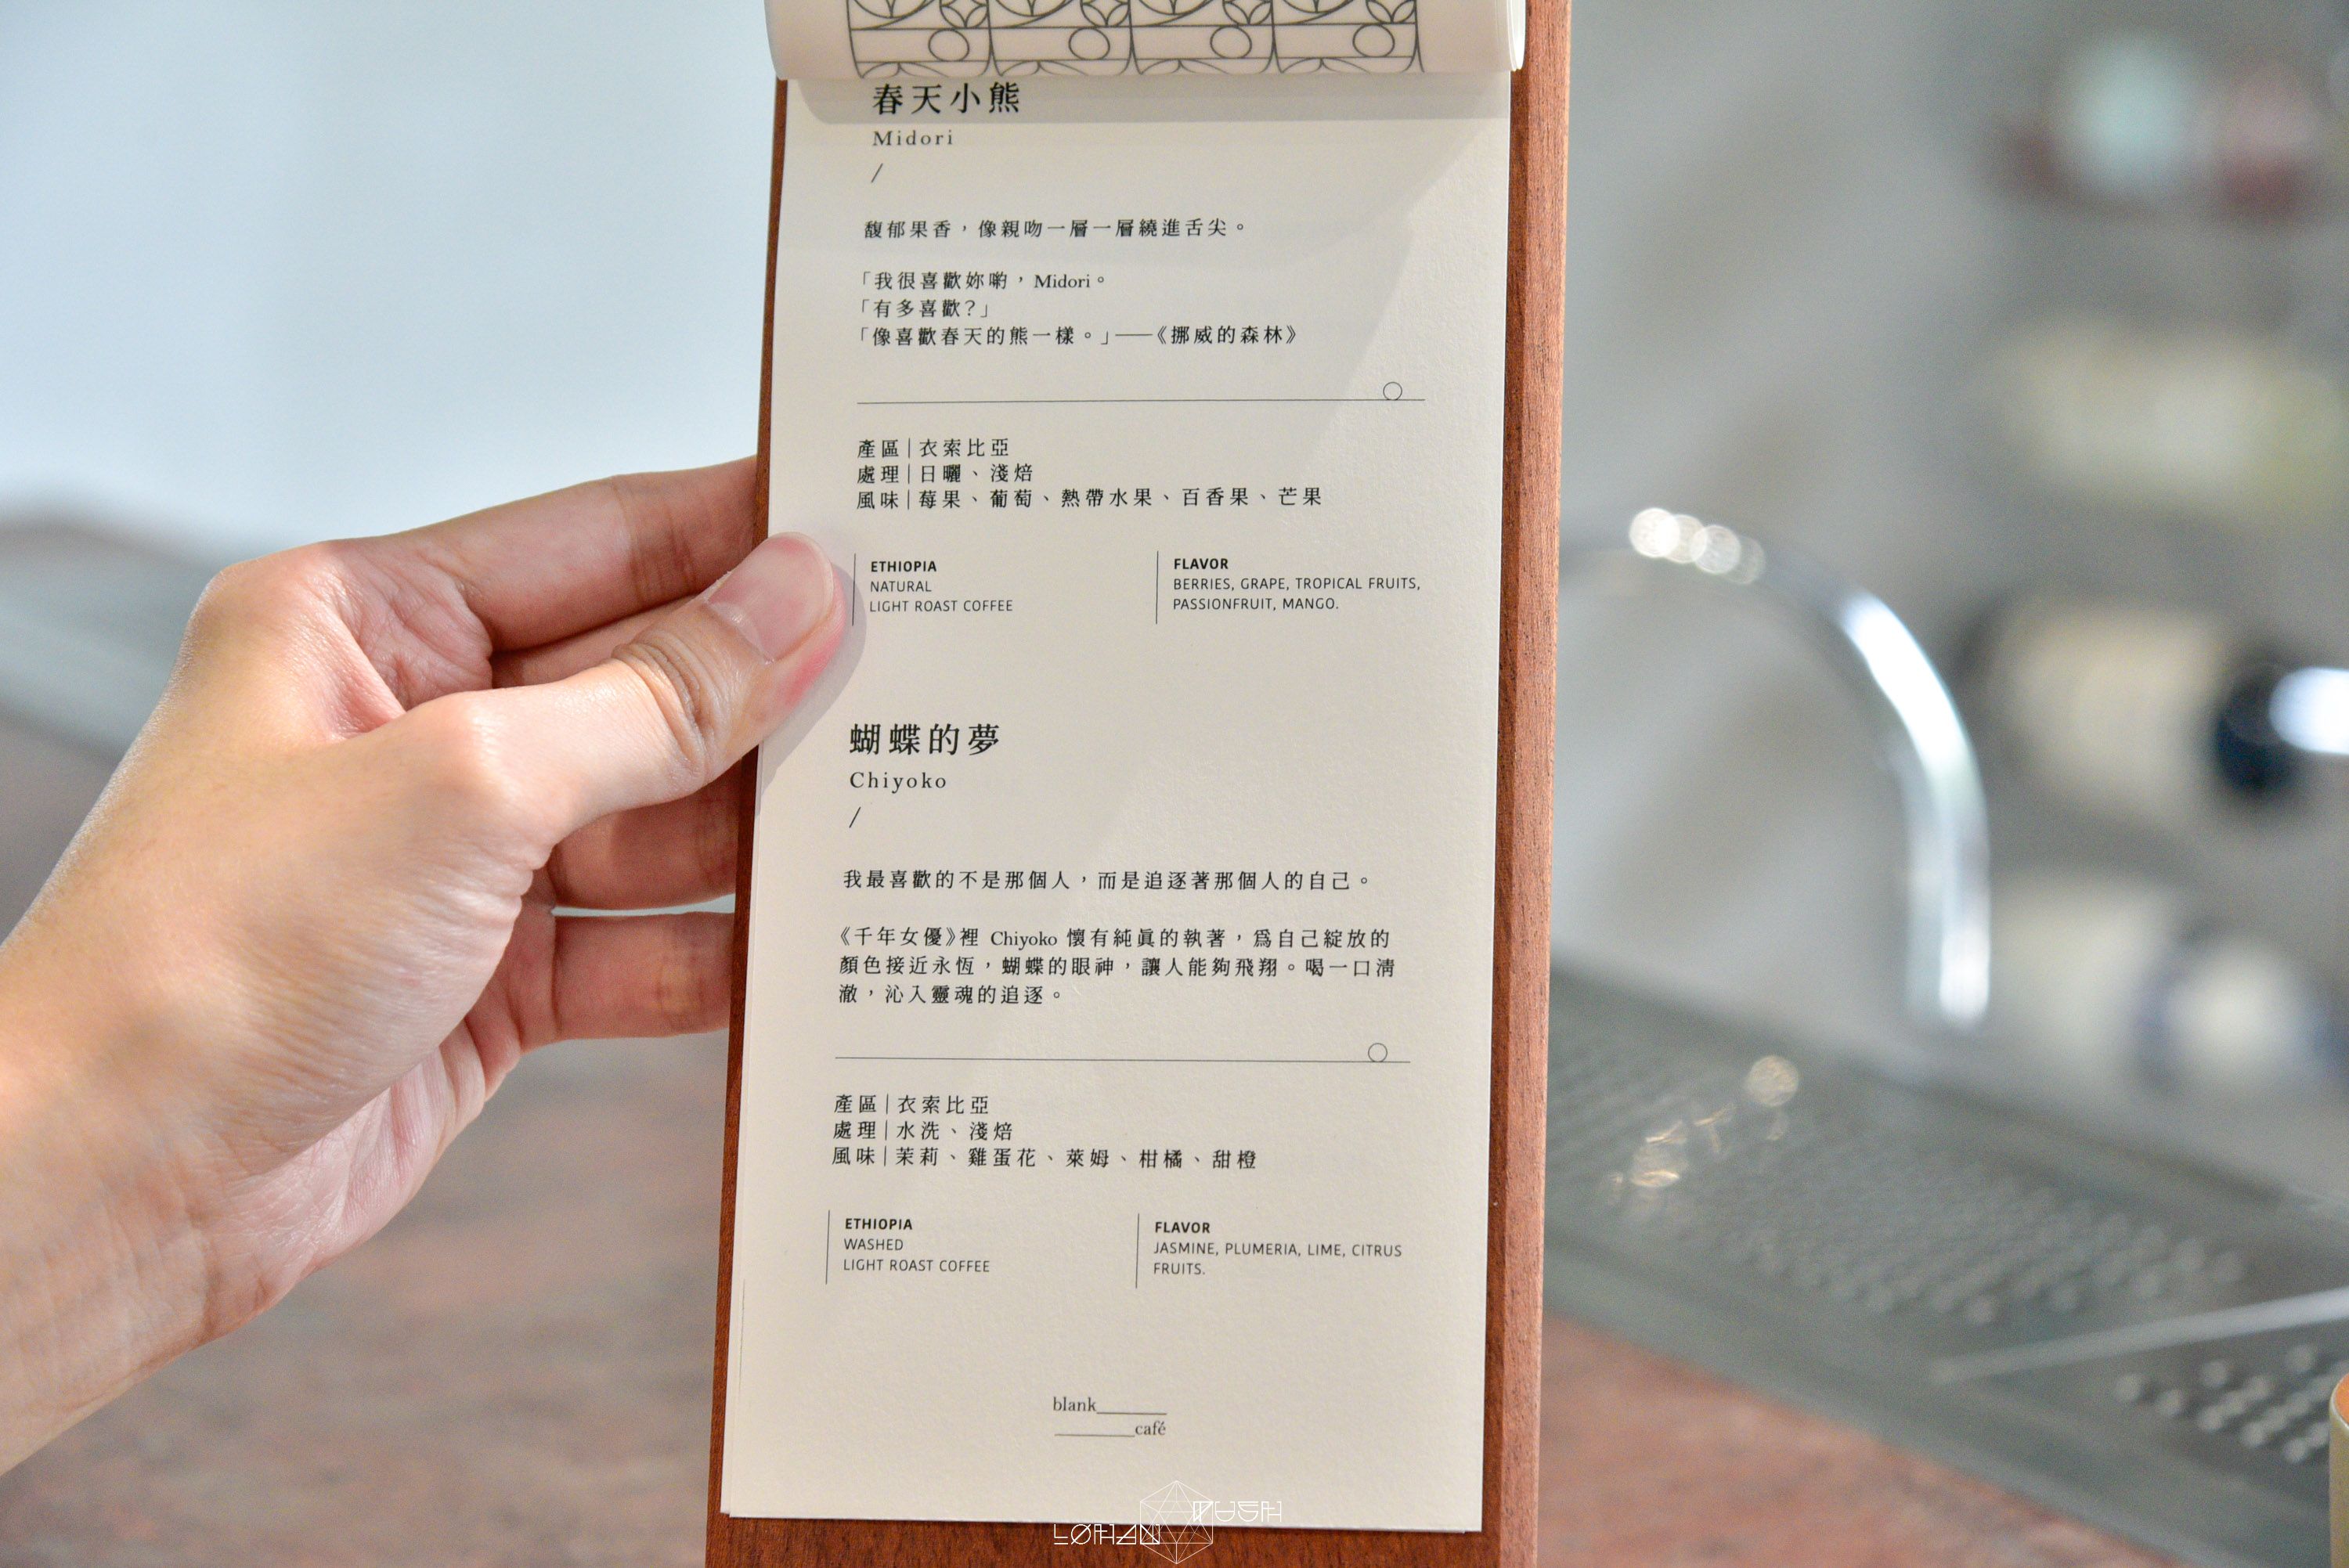 春天小熊
Midori
/
馥郁果香，像親吻一層一層繞進舌尖。
「我很喜歡妳喲，Midori。
「有多喜歡？」
「像喜歡春天的熊一樣。」——《挪威的森林》
產區|衣索比亞
處理|日曬、淺焙
風味|莓果、葡萄、熱帶水果、百香果、芒果
ETHIOPIA
NATURAL
LIGHT ROAST COFFEE
FLAVOR
BERRIES, GRAPE, TROPICAL FRUITS,
PASSIONFRUIT, MANGO.
蝴蝶的夢
Chiyoko
/
我最喜歡的不是那個人，而是追逐著那個人的自己。
《千年女優》裡 Chiyoko 懷有純真的執著，為自己綻放的
顏色接近永恆，蝴蝶的眼神，讓人能夠飛翔。喝一口清
澈，沁入靈魂的追逐。
產區|衣索比亞
處理|水洗、淺焙
風味|茉莉、雞蛋花、萊姆、柑橘、甜橙
ETHIOPIA
WASHED
LIGHT ROAST COFFEE
FLAVOR
JASMINE, PLUMERIA, LIME, CITRUS
FRUITS.
blank______
______café